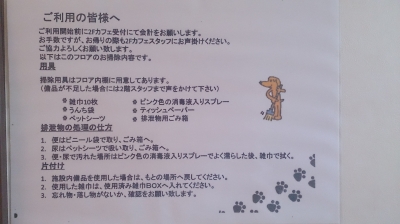 ご利用の皆様へ
ご利用開始前に2Fカフェ受付にて会計をお願いします。
お手数ですが、お帰りの際も2Fカフェスタッフにお声掛けください。
ご協力よろしくお願い致します。
以下はこのフロアのお掃除内容です。
用具
掃除用具はフロア内棚に用意してあります。
(備品が不足した場合には2階スタッフまで声をかけて下さい)
・雑巾10枚
・うんち袋
・ペットシーツ
・ピンク色の消毒液入りスプレー
・ティッシュペーパー
・排泄物用ごみ箱
排泄物の処理の仕方
1. 便はビニール袋で取り、ごみ箱へ。
2. 尿はペットシーツで吸い取り、ごみ箱へ。
3. 便・尿で汚れた場所はピンク色の消毒液入りスプレーでよく濡らした後、雑巾で拭く。
片付け
1. 施設内備品を使用した場合は、もとの場所へ戻してください。
2. 使用した雑巾は、使用済み雑巾BOXへ入れてください。
3. 忘れ物・落し物がないか、確認をお願い致します。